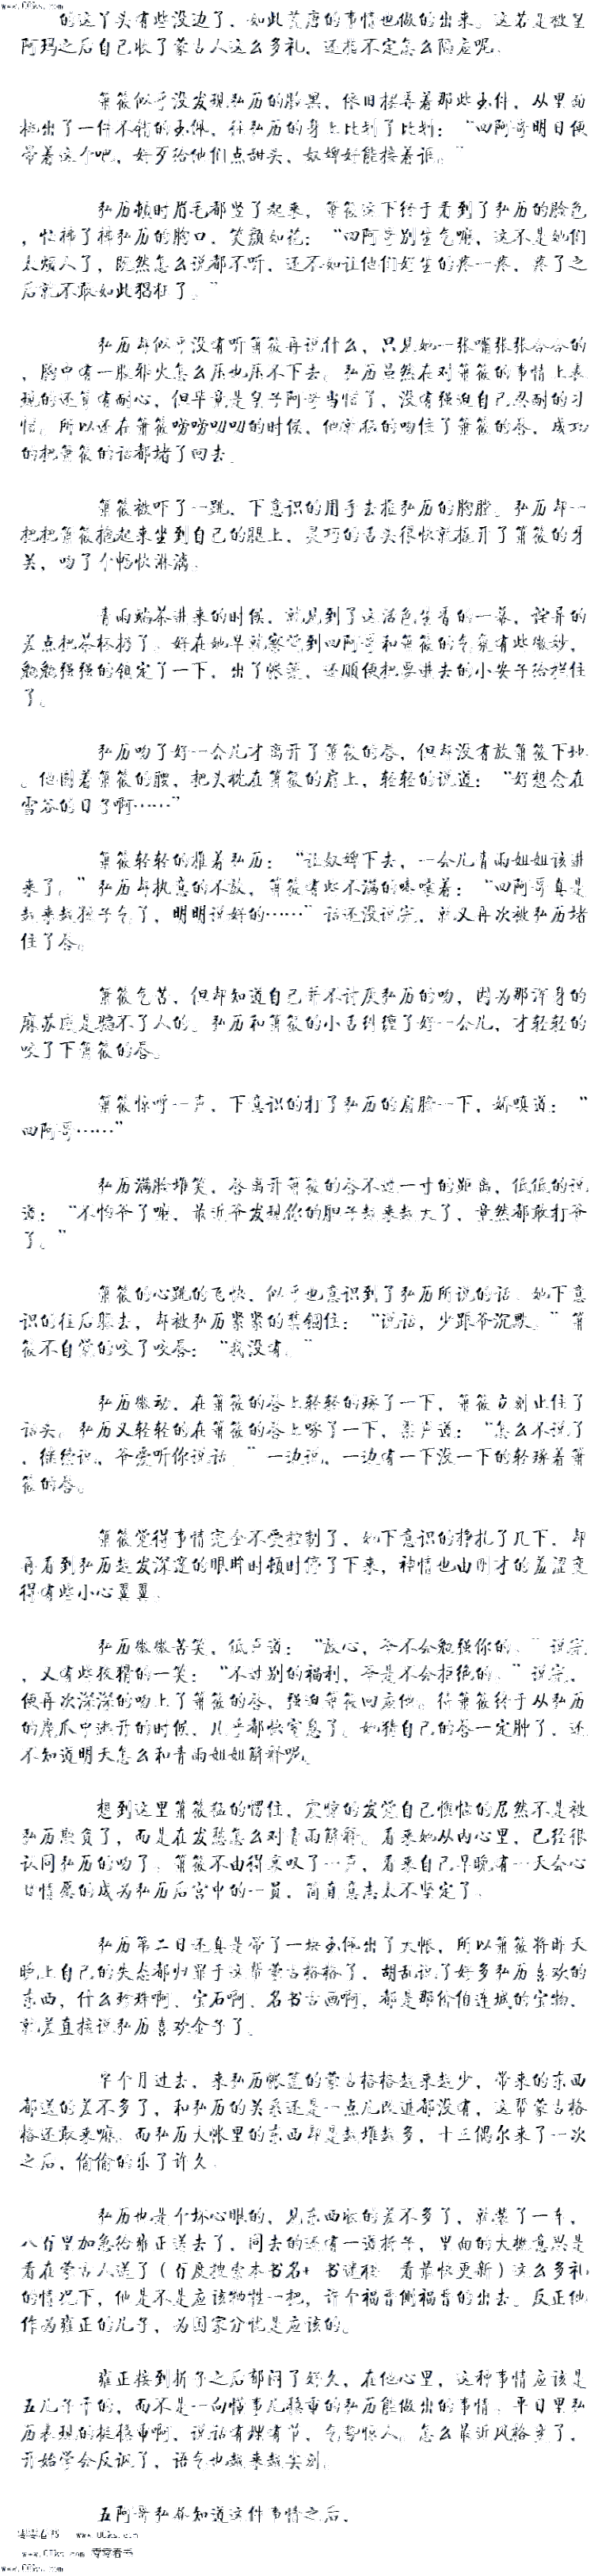 www.00ks.com
的这丫头有些没边了，如此荒唐的事情也做的出来。这若是被皇
阿玛之后自己收了蒙古人这么多礼，还指不定怎么陷应呢。
萧筱似乎没发现弘历的脸黑，依旧摆弄着那些玉件，从里面
挑出了一件不错的玉佩，往弘历的身上比划了比划：“四阿哥明日便
带着这个吧，好歹给他们点甜头，奴婢好能接着诓。”
弘历顿时眉毛都竖了起来，萧筱这下终于看到了弘历的脸色
，忙捋了捋弘历的胸口，笑颜如花：“四阿哥别生气嘛，这不是她们
太烦人了，既然怎么说都不听，还不如让他们好生的疼一疼，疼了之
后就不敢如此猖狂了。”
弘历却似乎没有听萧筱再说什么，只见她一张嘴张张合合的
，胸中有一股邪火怎么压也压不下去。弘历虽然在对萧筱的事情上表
现的还算有耐心，但毕竟是皇子阿哥当惯了，没有强迫自己忍耐的习
惯。所以还在萧筱唠唠叨叨的时候，他京猛的吻住了萧筱的唇，成功
的把萧筱的话都堵了回去。
萧筱被吓了一跳，下意识的用手去推弘历的胸膛。弘历却一
把把萧筱抱起来坐到自己的腿上，灵巧的舌头很快就撬开了萧筱的牙
关，吻了个畅快淋漓。
青雨端茶进来的时候，就见到了这活色生香的一幕，诧异的
差点把茶杯扔了。好在她早就察觉到四阿哥和萧筱的气氛有些微妙，
勉勉强强的镇定了一下，出了帐篷，还顺便把要进去的小安子给拦住
了。
弘历吻了好一会儿才离开了萧筱的唇，但却没有放萧筱下地
。他圈着萧筱的腰，把头枕在萧筱的肩上，轻轻的说道：“好想念在
雪谷的日子啊……”
萧筱轻轻的推着弘历：“让奴婢下去，一会儿青雨姐姐该进
来了。”弘历却执意的不放，萧筱有些不满的嘟囔着：“四阿哥真是
越来越孩子气了，明明说好的……”话还没说完，就又再次被弘历堵
住了唇。
萧筱气苦，但却知道自己并不讨厌弘历的吻，因为那浑身的
麻苏感是骗不了人的。弘历和萧筱的小舌纠缠了好一会儿，才轻轻的
咬了下萧筱的唇。
萧筱惊呼一声，下意识的打了弘历的肩膀一下，娇嗔道：“
四阿哥……”
弘历满脸堆笑，唇离开萧筱的唇不过一寸的距离，低低的说
道：“不怕爷了嘛，最近爷发现你的胆子越来越大了，竟然都敢打爷
了。”
萧筱的心跳的飞快，似乎也意识到了弘历所说的话。她下意
识的往后躲去，却被弘历紧紧的禁锢住：“说话，少跟爷沉默。”萧
筱不自觉的咬了咬唇：“我没有。”
弘历微动，在萧筱的唇上轻轻的琢了一下，萧筱立刻止住了
话头。弘历又轻轻的在萧筱的唇上啄了一下，柔声道：“怎么不说了
，继续说，爷爱听你说话。”一边说，一边有一下没一下的轻琢着萧
筱的唇。
萧筱觉得事情完全不受控制了，她下意识的挣扎了几下，却
再看到弘历越发深邃的眼眸时顿时停了下来，神情也由刚才的羞涩变
得有些小心翼翼。
弘历微微苦笑，低声道：“放心，爷不会勉强你的。”说完
，又有些狡猾的一笑：“不过别的福利，爷是不会拒绝的。”说完，
便再次深深的吻上了萧筱的唇，强迫萧筱回应他。待萧筱终于从弘历
的魔爪中逃开的时候，几乎都快窒息了。她猜自己的唇一定肿了，还
不知道明天怎么和青雨姐姐解释呢。
想到这里萧筱猛的愣住，震惊的发觉自己懊恼的居然不是被
弘历欺负了，而是在发愁怎么对青雨解释。看来她从内心里，已经很
认同弘历的吻了。萧筱不由得哀叹了一声，看来自己早晚有一天会心
甘情愿的成为弘历后宫中的一员，简直意志太不坚定了。
弘历第二日还真是带了一块玉佩出了大帐，所以萧筱将昨天
晚上自己的失态都归罪于这帮蒙古格格了，胡乱说了好多弘历喜欢的
东西，什么珍珠啊、宝石啊、名书古画啊，都是那价值连城的宝物，
就差直接说弘历喜欢金子了。
半个月过去，来弘历帐篷的蒙古格格越来越少，带来的东西
都送的差不多了，和弘历的关系还是一点儿改进都没有，这帮蒙古格
格还敢来嘛。而弘历大帐里的东西却是越堆越多，十三偶尔来了一次
之后，偷偷的乐了许久。
弘历也是个坏心眼的，见东西收的差不多了，就装了一车，
八百里加急给雍正送去了，同去的还有一道折子，里面的大概意思是
看在蒙古人送了（百度搜索本书名+ 书谜楼 看最快更新）这么多礼
的情况下，他是不是应该牺牲一把，许个福晋侧福晋的出去。反正他
作为雍正的儿子，为国家分忧是应该的。
雍正接到折子之后郁闷了好久，在他心里，这种事情应该是
五儿子干的，而不是一向懂事儿稳重的弘历能做出的事情。平日里弘
历表现的挺稳重啊，说话有理有节，气势惊人。怎么最近风格变了，
开始学会反讽了，语气也越来越尖刻。
五阿哥弘昼知道这件事情之后，
零零看书 www.00ks.com
www.00ks.com 零零看书
www.00ks.com